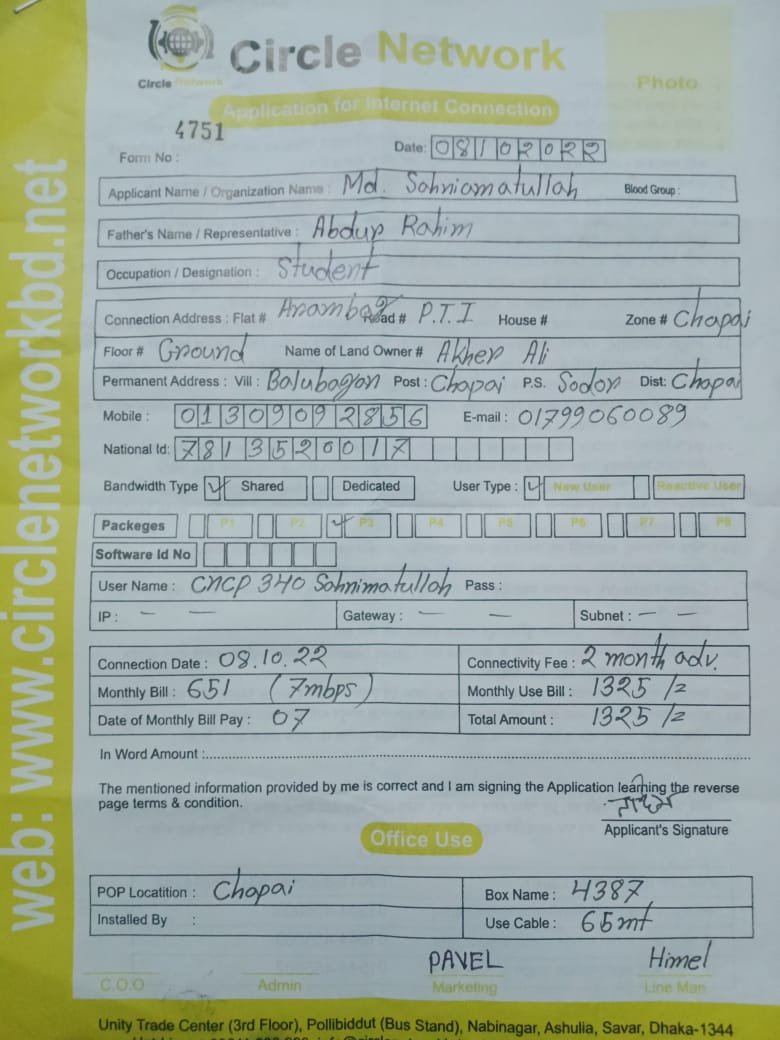 Circle Network
Circle Network
Photo
Application for Internet Connection
4751
Form No :
Date: 08102022
Applicant Name / Organization Name : Md. Sahniamatullah Blood Group :
Father's Name / Representative : Abdur Rahim
Occupation / Designation : Student
Connection Address : Flat # Arambag Road # P.T.I House # Zone # Chapai
Floor # Ground Name of Land Owner # Akher Ali
Permanent Address : Vill : Balubagan Post : Chapai P.S. Sador Dist: Chapai
Mobile : 01309092856 E-mail : 01799060089
National Id: 7813520017
Bandwidth Type ✓ Shared Dedicated User Type : ✓ New User Reactive User
Packeges P1 P2 ✓ P3 P4 P5 P6 P7 P8
Software Id No
User Name : CNCP 340 Sahnimatullah Pass :
IP : — — Gateway : — — Subnet : — —
Connection Date : 08.10.22 Connectivity Fee : 2 month adv.
Monthly Bill : 651 (7mbps) Monthly Use Bill : 1325 /=
Date of Monthly Bill Pay : 07 Total Amount : 1325 /=
In Word Amount :
The mentioned information provided by me is correct and I am signing the Application learning the reverse
page terms & condition.
Applicant's Signature
Office Use
POP Locatition : Chapai Box Name : 4387
Installed By : Use Cable : 65mt
PAVEL Himel
C.O.O Admin Marketing Line Man
Unity Trade Center (3rd Floor), Pollibiddut (Bus Stand), Nabinagar, Ashulia, Savar, Dhaka-1344
web: www.circlenetworkbd.net